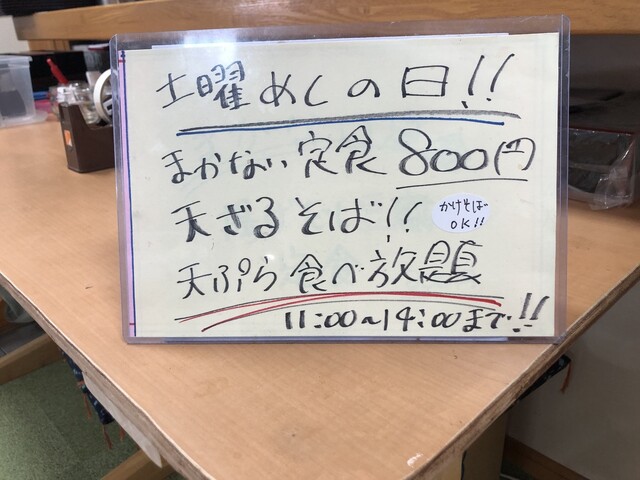 土曜めしの日!!
まかない定食 800円
天ざるそば!!
かけそば
OK!!
天ぷら食べ放題
11:00~14:00まで!!